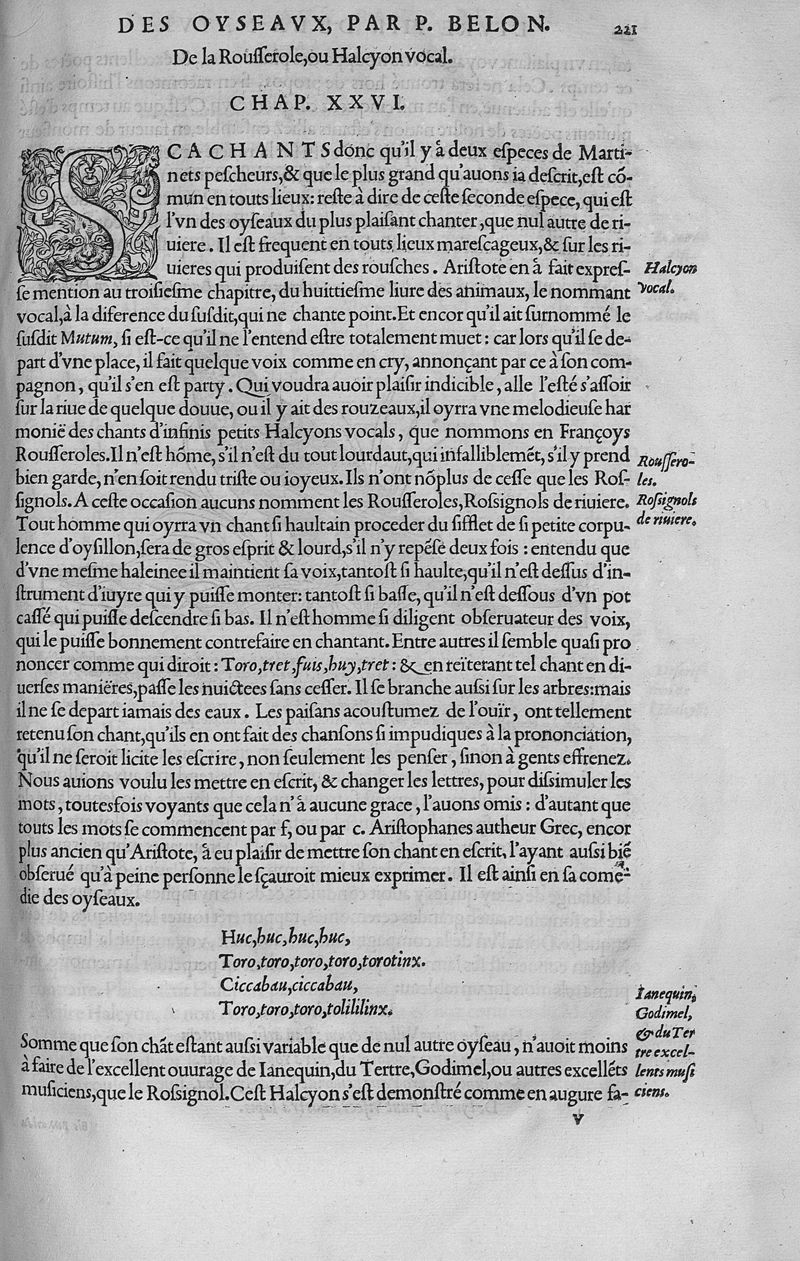 DES OYSEAVX, PAR P. BELON. 221
De la Rousserole, ou Halcyon vocal.
CHAP. XXVI.
SCACHANTS donc qu'il y à deux especes de Marti-
nets pescheurs, & que le plus grand qu'auons ia descrit, est cõ-
mun en touts lieux: reste à dire de ceste seconde espece, qui est
l'vn des oyseaux du plus plaisant chanter, que nul autre de ri-
uiere. Il est frequent en touts lieux marescageux, & sur les ri-
uieres qui produisent des rousches. Aristote en à fait expres-
Halcyon
vocal.
se mention au troisiesme chapitre, du huittiesme liure des animaux, le nommant
vocal, à la diference du susdit, qui ne chante point. Et encor qu'il ait surnommé le
susdit Mutum, si est-ce qu'il ne l'entend estre totalement muet: car lors qu'il se de-
part d'vne place, il fait quelque voix comme en cry, annonçant par ce à son com-
pagnon, qu'il s'en est party. Qui voudra auoir plaisir indicible, alle l'esté s'assoir
sur la riue de quelque douue, ou il y ait des rouzeaux, il oyrra vne melodieuse har
monië des chants d'infinis petits Halcyons vocals, que nommons en Françoys
Rousseroles. Il n'est hõme, s'il n'est du tout lourdaut, qui infalliblemẽt, s'il y prend
Roussero-
les.
bien garde, n'en soit rendu triste ou ioyeux. Ils n'ont nõplus de cesse que les Ros-
signols. A ceste occasion aucuns nomment les Rousseroles, Rossignols de riuiere.
Rossignols
de riuiere.
Tout homme qui oyrra vn chant si haultain proceder du sifflet de si petite corpu-
lence d'oysillon, sera de gros esprit & lourd, s'il n'y repẽse deux fois: entendu que
d'vne mesme haleinee il maintient sa voix, tantost si haulte, qu'il n'est dessus d'in-
strument d'iuyre qui y puisse monter: tantost si basse, qu'il n'est dessous d'vn pot
cassé qui puisse descendre si bas. Il n'est homme si diligent obseruateur des voix,
qui le puisse bonnement contrefaire en chantant. Entre autres il semble quasi pro
noncer comme qui diroit: Toro, tret, fuis, huy, tret: & en reïterant tel chant en di-
uerses manieres, passe les nuictees sans cesser. Il se branche aussi sur les arbres: mais
il ne se depart iamais des eaux. Les païsans acoustumez de l'ouïr, ont tellement
retenu son chant, qu'ils en ont fait des chansons si impudiques à la prononciation,
qu'il ne seroit licite les escrire, non seulement les penser, sinon à gents effrenez.
Nous auions voulu les mettre en escrit, & changer les lettres, pour dissimuler les
mots, toutesfois voyants que cela n'à aucune grace, l'auons omis: d'autant que
touts les mots se commencent par f, ou par c. Aristophanes autheur Grec, encor
plus ancien qu'Aristote, à eu plaisir de mettre son chant en escrit, l'ayant aussi biẽ
obserué qu'à peine personne le sçauroit mieux exprimer. Il est ainsi en sa come-
die des oyseaux.
Huc, huc, huc, huc,
Toro, toro, toro, toro, torotinx.
Ciccabau, ciccabau,
Toro, toro, toro, tolililinx.
Somme que son chãt estant aussi variable que de nul autre oyseau, n'auoit moins
à faire de l'excellent ouurage de Ianequin, du Tertre, Godimel, ou autres excellẽts
musiciens, que le Rossignol. Cest Halcyon s'est demonstré comme en augure fa-
Ianequin,
Godimel,
& du Ter
tre excel-
lents musi
ciens.
V